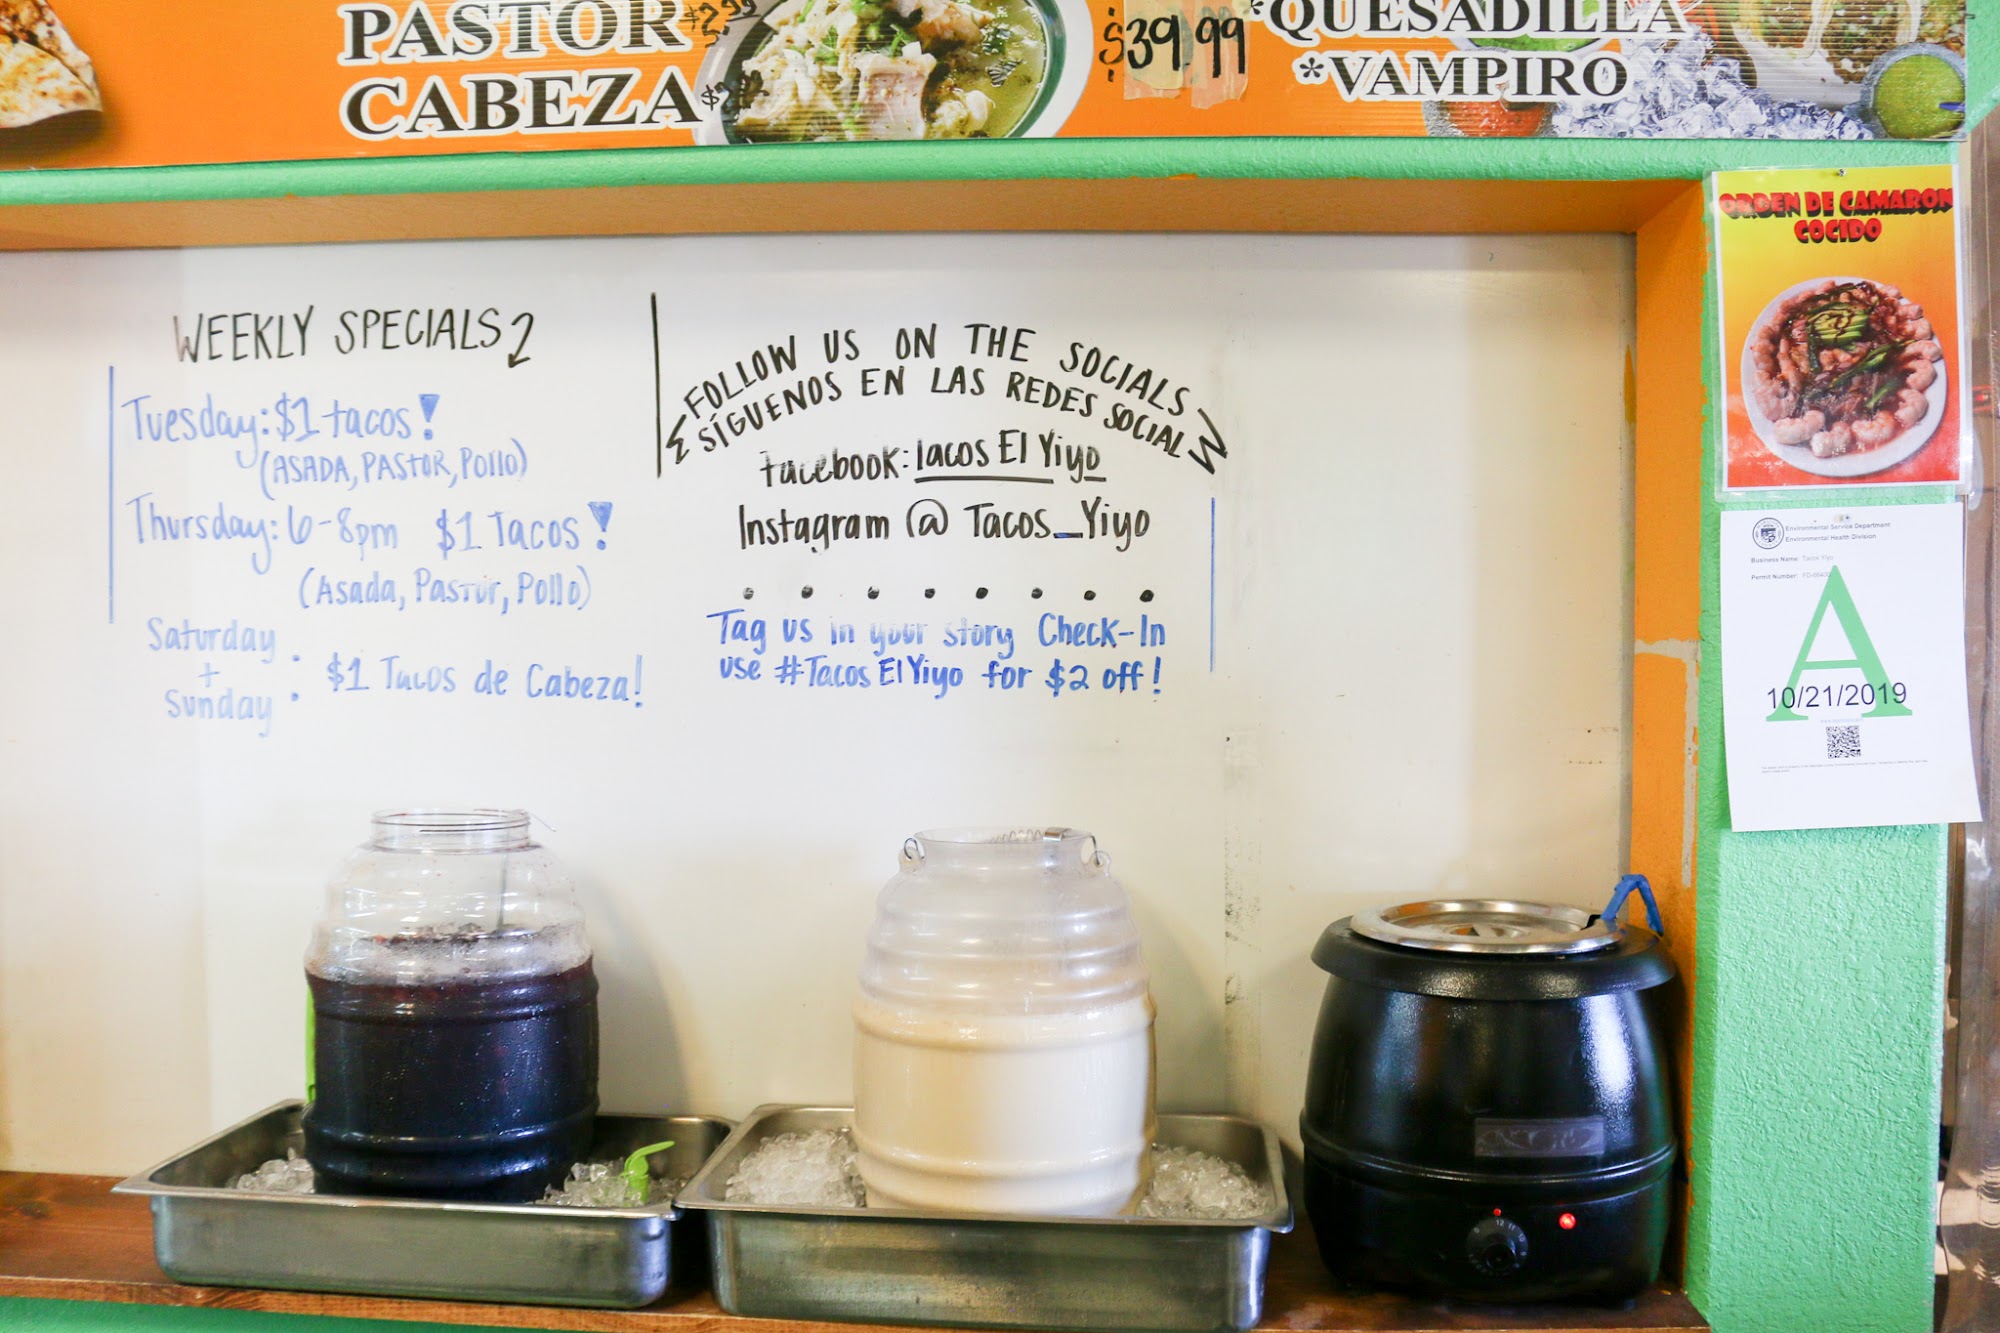 PASTOR
CABEZA
$39.99
*QUESADILLA
*VAMPIRO
ORDEN DE CAMARON
COCIDO
WEEKLY SPECIALS
Tuesday: $1 tacos!
(ASADA, PASTOR, Pollo)
Thursday: 6-8pm $1 Tacos!
(Asada, Pastor, Pollo)
Saturday
+
Sunday : $1 Tacos de Cabeza!
FOLLOW US ON THE SOCIALS
SÍGUENOS EN LAS REDES SOCIAL
facebook: Tacos El Yiyo
Instagram @ Tacos_Yiyo
Tag us in your story Check-In
use #Tacos El Yiyo for $2 off!
Environmental Service Department
Environmental Health Division
Business Name: Tacos Yiyo
Permit Number:
A
10/21/2019